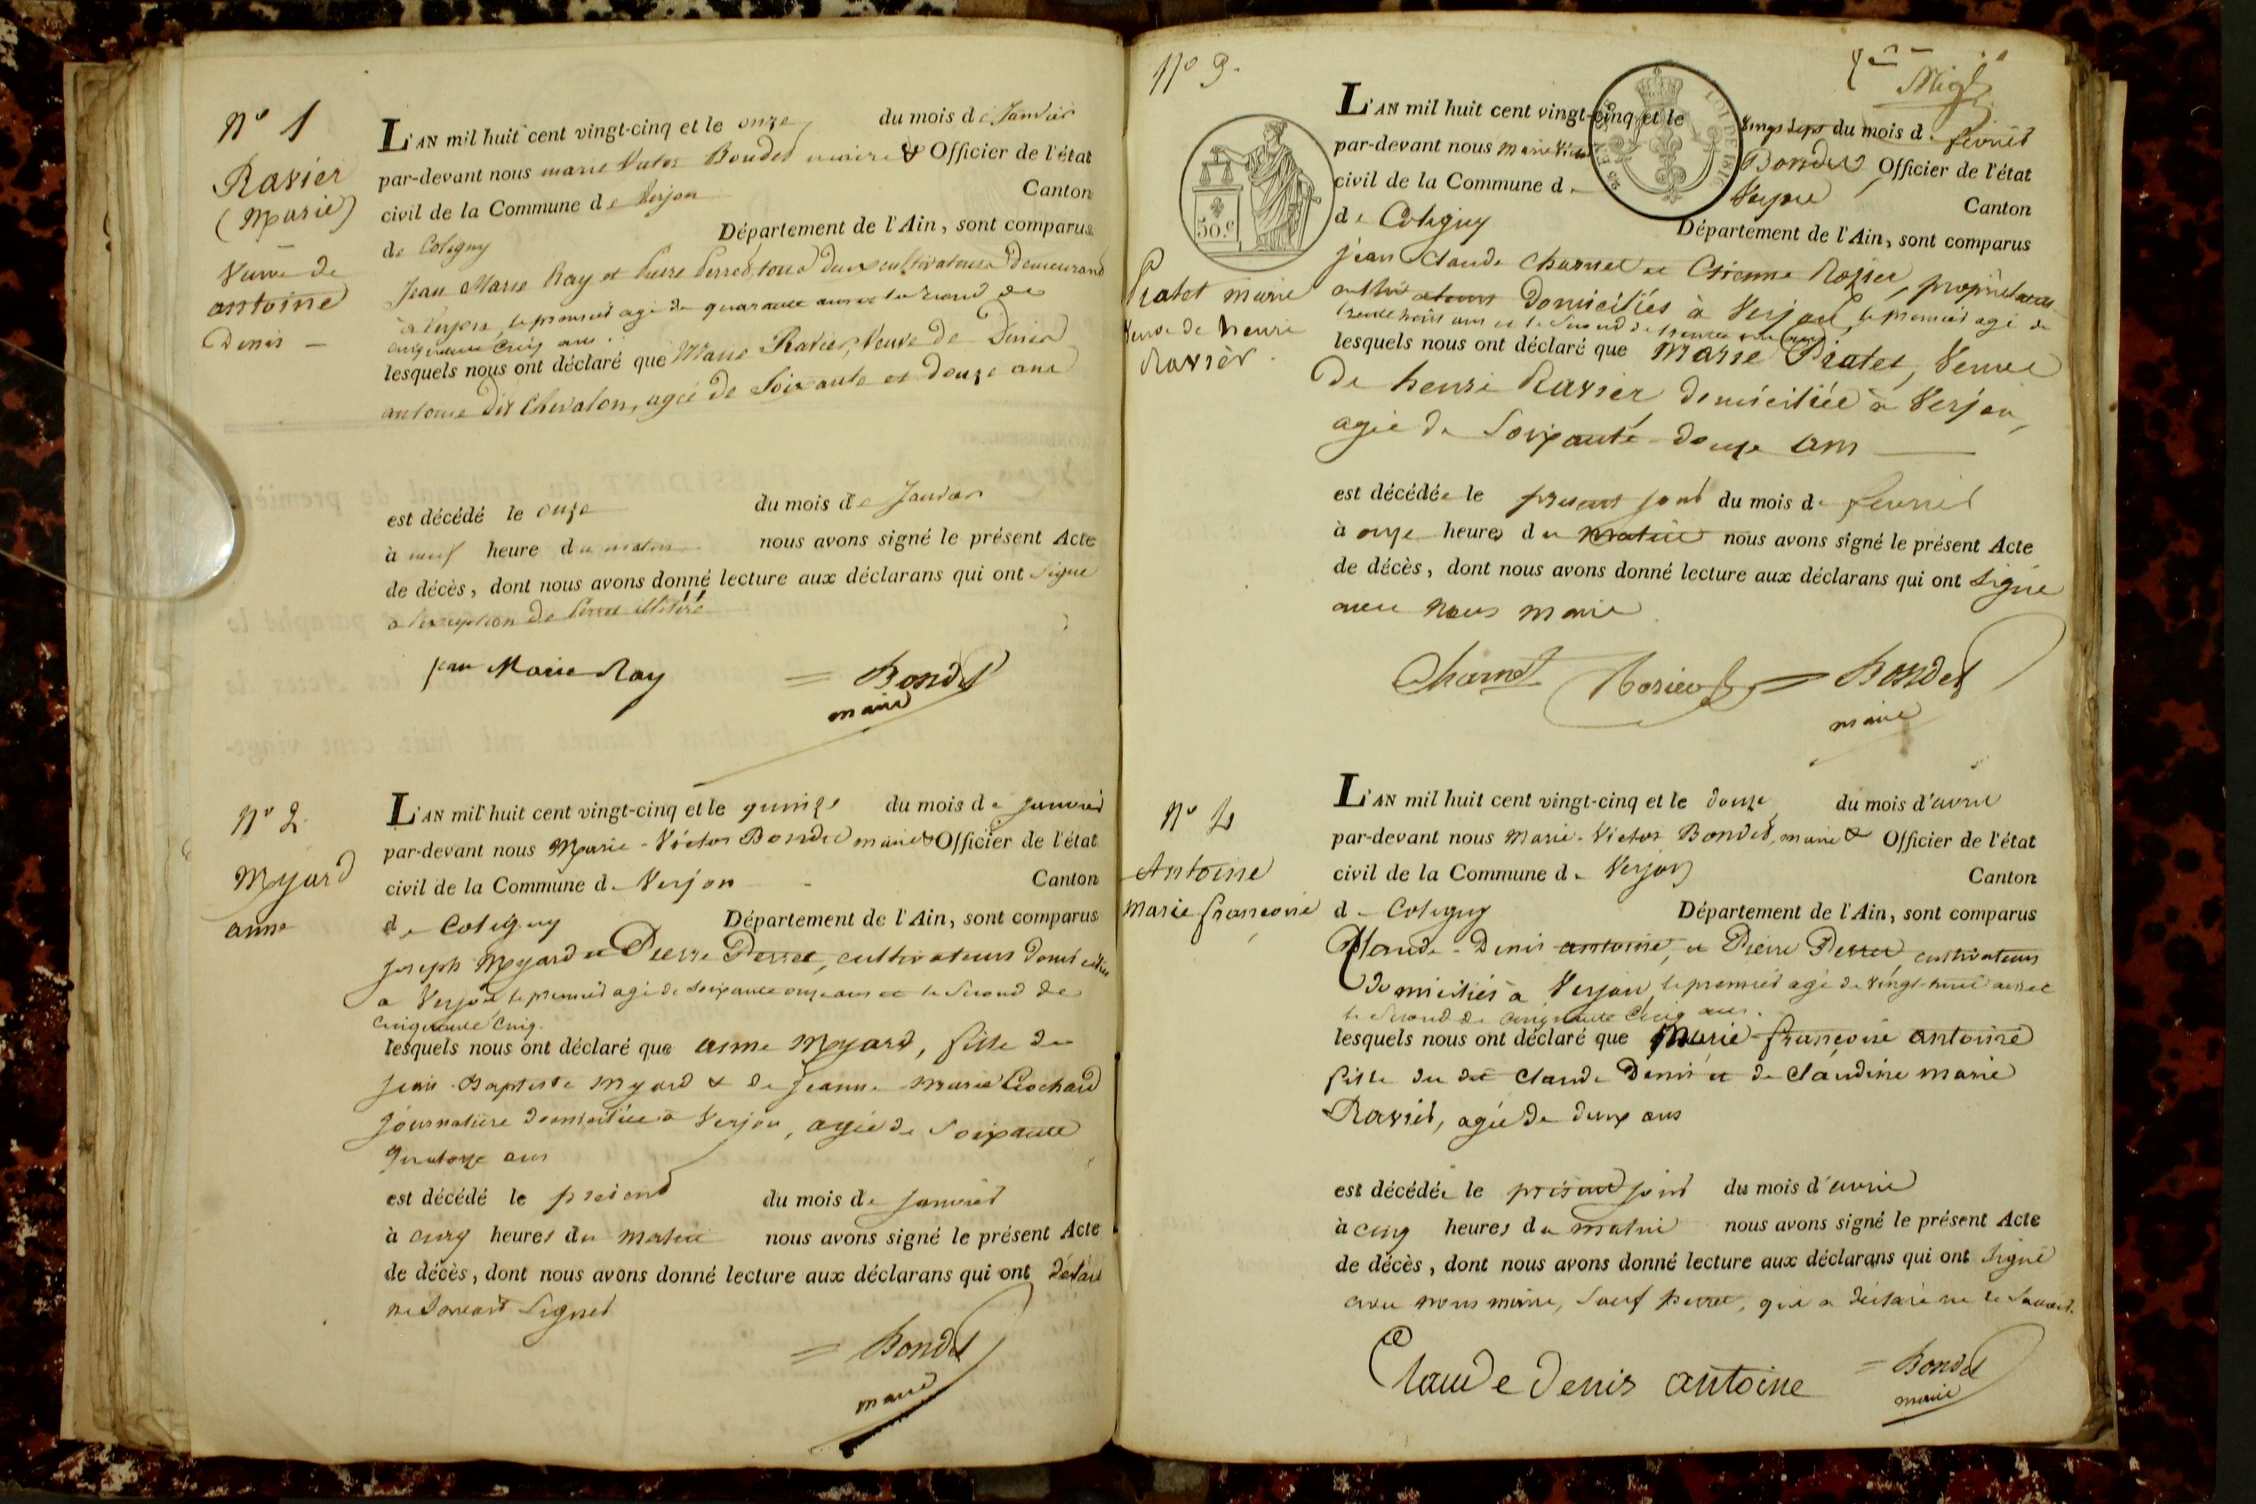 N° 1
Ravier
(Marie)
Veuve de
antoine
Denis
L'AN mil huit cent vingt-cinq et le onze du mois de Janvier
par-devant nous marie Victor Bondet maire & Officier de l'état
civil de la Commune de Verjon Canton
de Coligny Département de l'Ain, sont comparus
Jean Marie Ray et Pierre Perret, tous deux cultivateurs Demeurant
à Verjon, le premier agé de quarante ans et le second de
cinquante cinq ans
lesquels nous ont déclaré que Marie Ravier, Veuve de Denis
antoine dit Chevalon, agée de Soixante et douze ans
est décédé le onze du mois de Janvier
à neuf heure du matin nous avons signé le présent Acte
de décès, dont nous avons donné lecture aux déclarans qui ont signé
a l'exception de Perret illitéré
jean Marie Ray = Bondet
maire
N° 2
Myard
anne
L'AN mil huit cent vingt-cinq et le quinze du mois de janvier
par-devant nous Marie-Victor Bondet maire & Officier de l'état
civil de la Commune de Verjon Canton
de Coligny Département de l'Ain, sont comparus
joseph Myard et Pierre Perret, cultivateurs domiciliés
a Verjon le premier agé de soixante onze ans et le second de
cinquante cinq.
lesquels nous ont déclaré que anne Myard, fille de
jean-Baptiste Myard & de jeanne Marie
journalière domiciliée à Verjon, agée de soixante
quatorze ans
est décédé le présent du mois de janvier
à cinq heures du matin nous avons signé le présent Acte
de décès, dont nous avons donné lecture aux déclarans qui ont déclaré
ne savoir signer
= Bondet
maire
N° 3.
Piatet marie
veuve de henri
Ravier.
L'AN mil huit cent vingt-cinq et le vingt sept du mois de février
par-devant nous Marie Victor Bondet Officier de l'état
civil de la Commune de Verjon Canton
de Coligny Département de l'Ain, sont comparus
50.c
LOI DE 1816
jean Claude Charnet et Etienne Rozier, propriétaires
cultivateurs domiciliés à Verjon, le premier agé de
trente huit ans et le second de trente
lesquels nous ont déclaré que Marie Piatet, veuve
de henri Ravier domiciliée à Verjon,
agée de Soixante-douze ans
est décédée le présent jour du mois de février
à onze heures du matin nous avons signé le présent Acte
de décès, dont nous avons donné lecture aux déclarans qui ont signé
avec nous maire
Charnet Rozier = Bondet
maire
N° 4
Antoine
Marie françoise
L'AN mil huit cent vingt-cinq et le douze du mois d'avril
par-devant nous Marie-Victor Bondet, maire & Officier de l'état
civil de la Commune de Verjon Canton
de Coligny Département de l'Ain, sont comparus
Claude-Denis antoine, et Pierre Perret cultivateurs
domiciliés à Verjon, le premier agé de vingt-neuf ans et
le second de cinquante cinq ans.
lesquels nous ont déclaré que Marie-françoise antoine
fille du dit Claude Denis et de Claudine marie
Ravier, agée de deux ans
est décédée le présent jour du mois d'avril
à cinq heures du matin nous avons signé le présent Acte
de décès, dont nous avons donné lecture aux déclarans qui ont signé
avec nous maire, sauf perret, qui a déclaré ne le savoir.
Claude Denis antoine = Bondet
maire